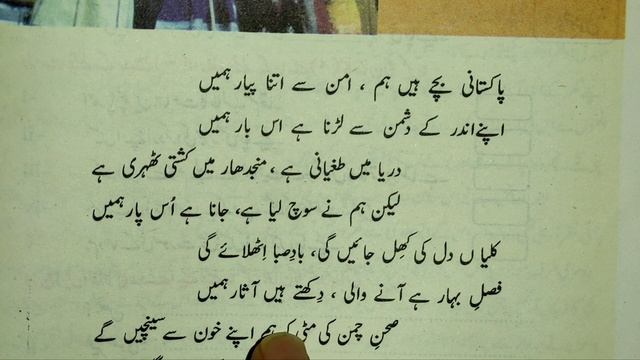 پاکستانی بچے ہیں ہم ، امن سے اتنا پیار ہمیں
اپنے اندر کے دشمن سے لڑنا ہے اس بار ہمیں
دریا میں طغیانی ہے ، منجدھار میں کشتی ٹھہری ہے
لیکن ہم نے سوچ لیا ہے، جانا ہے اُس پار ہمیں
کلیا ں دل کی کھِل جائیں گی، بادِصبا اِٹھلائے گی
فصلِ بہار ہے آنے والی ، دِکھتے ہیں آثار ہمیں
صحنِ چمن کی مٹی کو ہم اپنے خون سے سینچیں گے